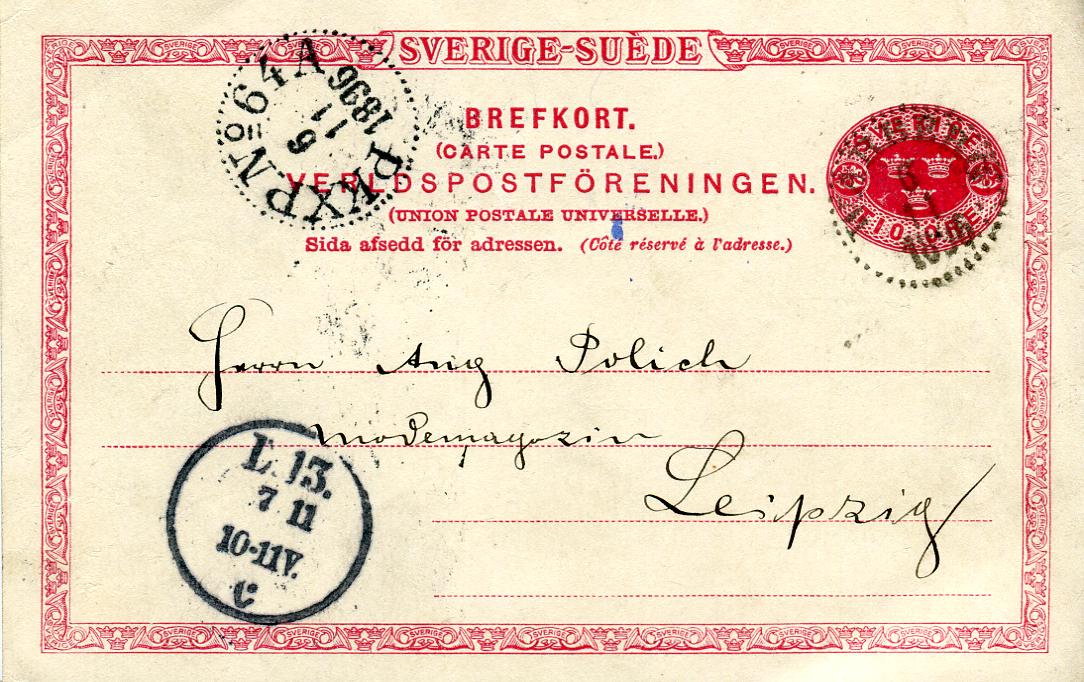 SVERIGE-SUÈDE
BREFKORT.
(CARTE POSTALE.)
VERLDSPOSTFÖRENINGEN.
(UNION POSTALE UNIVERSELLE.)
Sida afsedd för adressen. (Côté réservé à l'adresse.)
PKXP. No 64 A
6
11
1896
SVERIGE
TIO ÖRE
6
11
1896
Herrn Aug Polich
Modemagazin
Leipzig
L. 13.
7 11
10-11V.
c